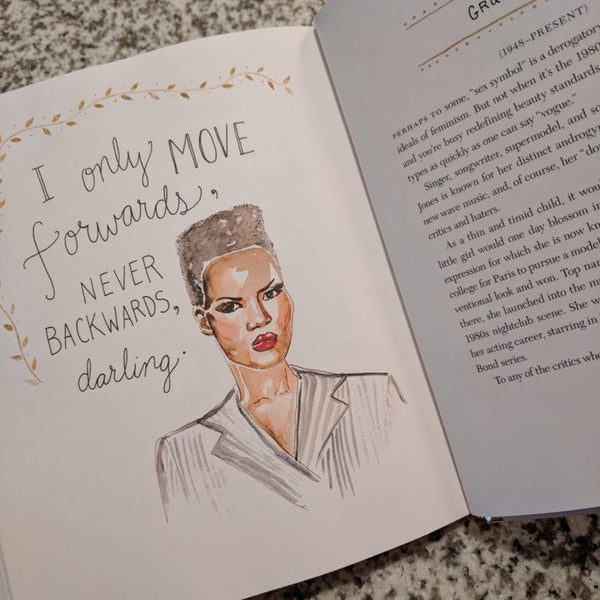 I only MOVE
forwards,
NEVER
BACKWARDS,
darling.
(1948–PRESENT)
PERHAPS TO some, "sex symbol" is a derogatory
ideals of feminism. But not when it's the 1980
and you're busy redefining beauty standards
types as quickly as one can say "vogue."
Singer, songwriter, supermodel, and
Jones is known for her distinct androgy
new wave music, and, of course, her "do
critics and haters.
As a thin and timid child, it wou
little girl would one day blossom i
expression for which she is now kn
college for Paris to pursue a model
ventional look and won. Top nam
there, she launched into the m
1980s nightclub scene. She w
her acting career, starring in
Bond series.
To any of the critics who